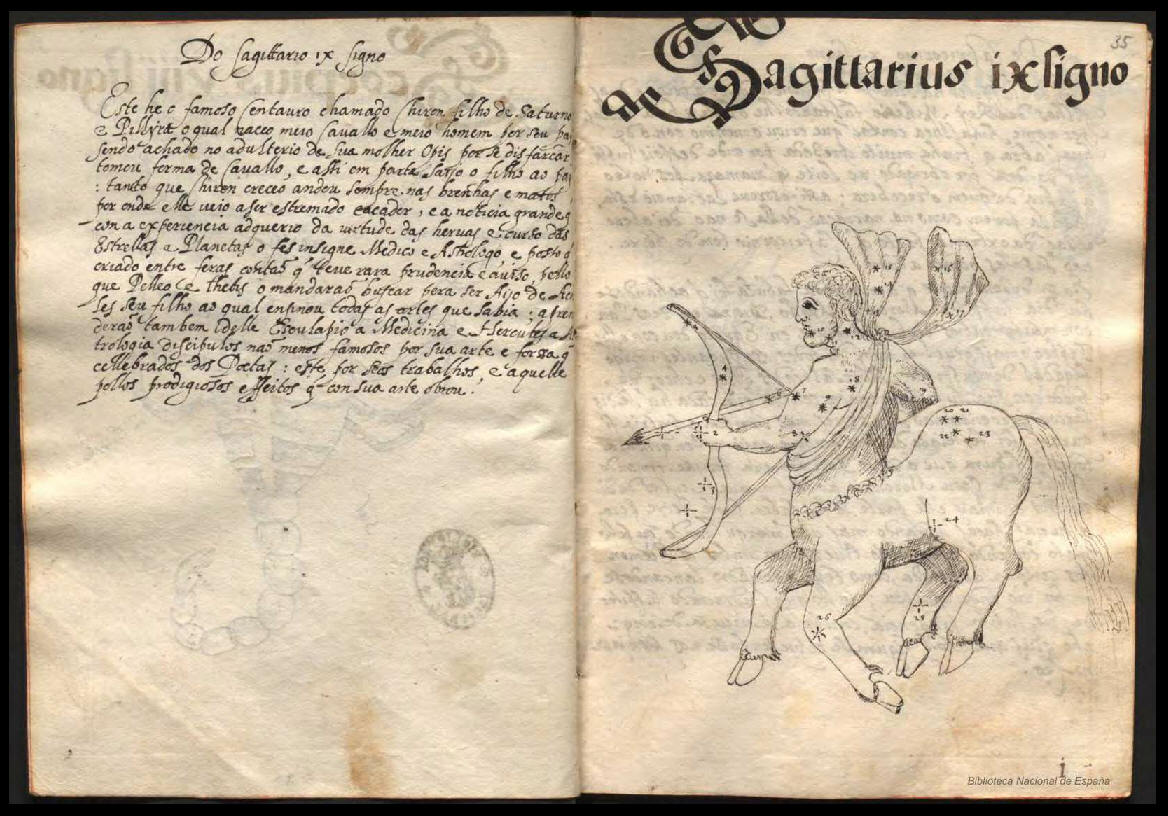 Do Sagittario ix signo
Este he o famoso Centauro chamado Chiron filho de Saturno
e Pillyra o qual naceo meio Cavallo e meio homem por seu pai
sendo achado no adulterio de sua molher Opis por se disfarçar
tomou forma de Cavallo, e assi em parte sahio o filho ao pai
: tanto que Chiron creceo andou sempre nas brenhas e matos
por onde elle veio a ser estremado caçador, e a noticia grande q
con a experiencia adquerio da virtude das hervas e curso das
Estrellas a Planetas o fes insigne Medico e Astrologo, e posto q
criado entre feras contaõ q teve rara prudencia e aviso, pollo
que Pelleo e Thetis o mandaraõ buscar pera ser Aijo de
ses seu filho ao qual ensinou todas as artes que sabia :
deraõ tambem delle Esculapio a Medicina e Hercules a
trologia discipulos naõ menos famosos por sua arte e forsa q
cellebrados dos Poetas : este por seos trabalhos, e aquelle
pollos prodigiosos effeitos q con sua arte obrou.
35
Sagittarius ix signo
Biblioteca Nacional de España